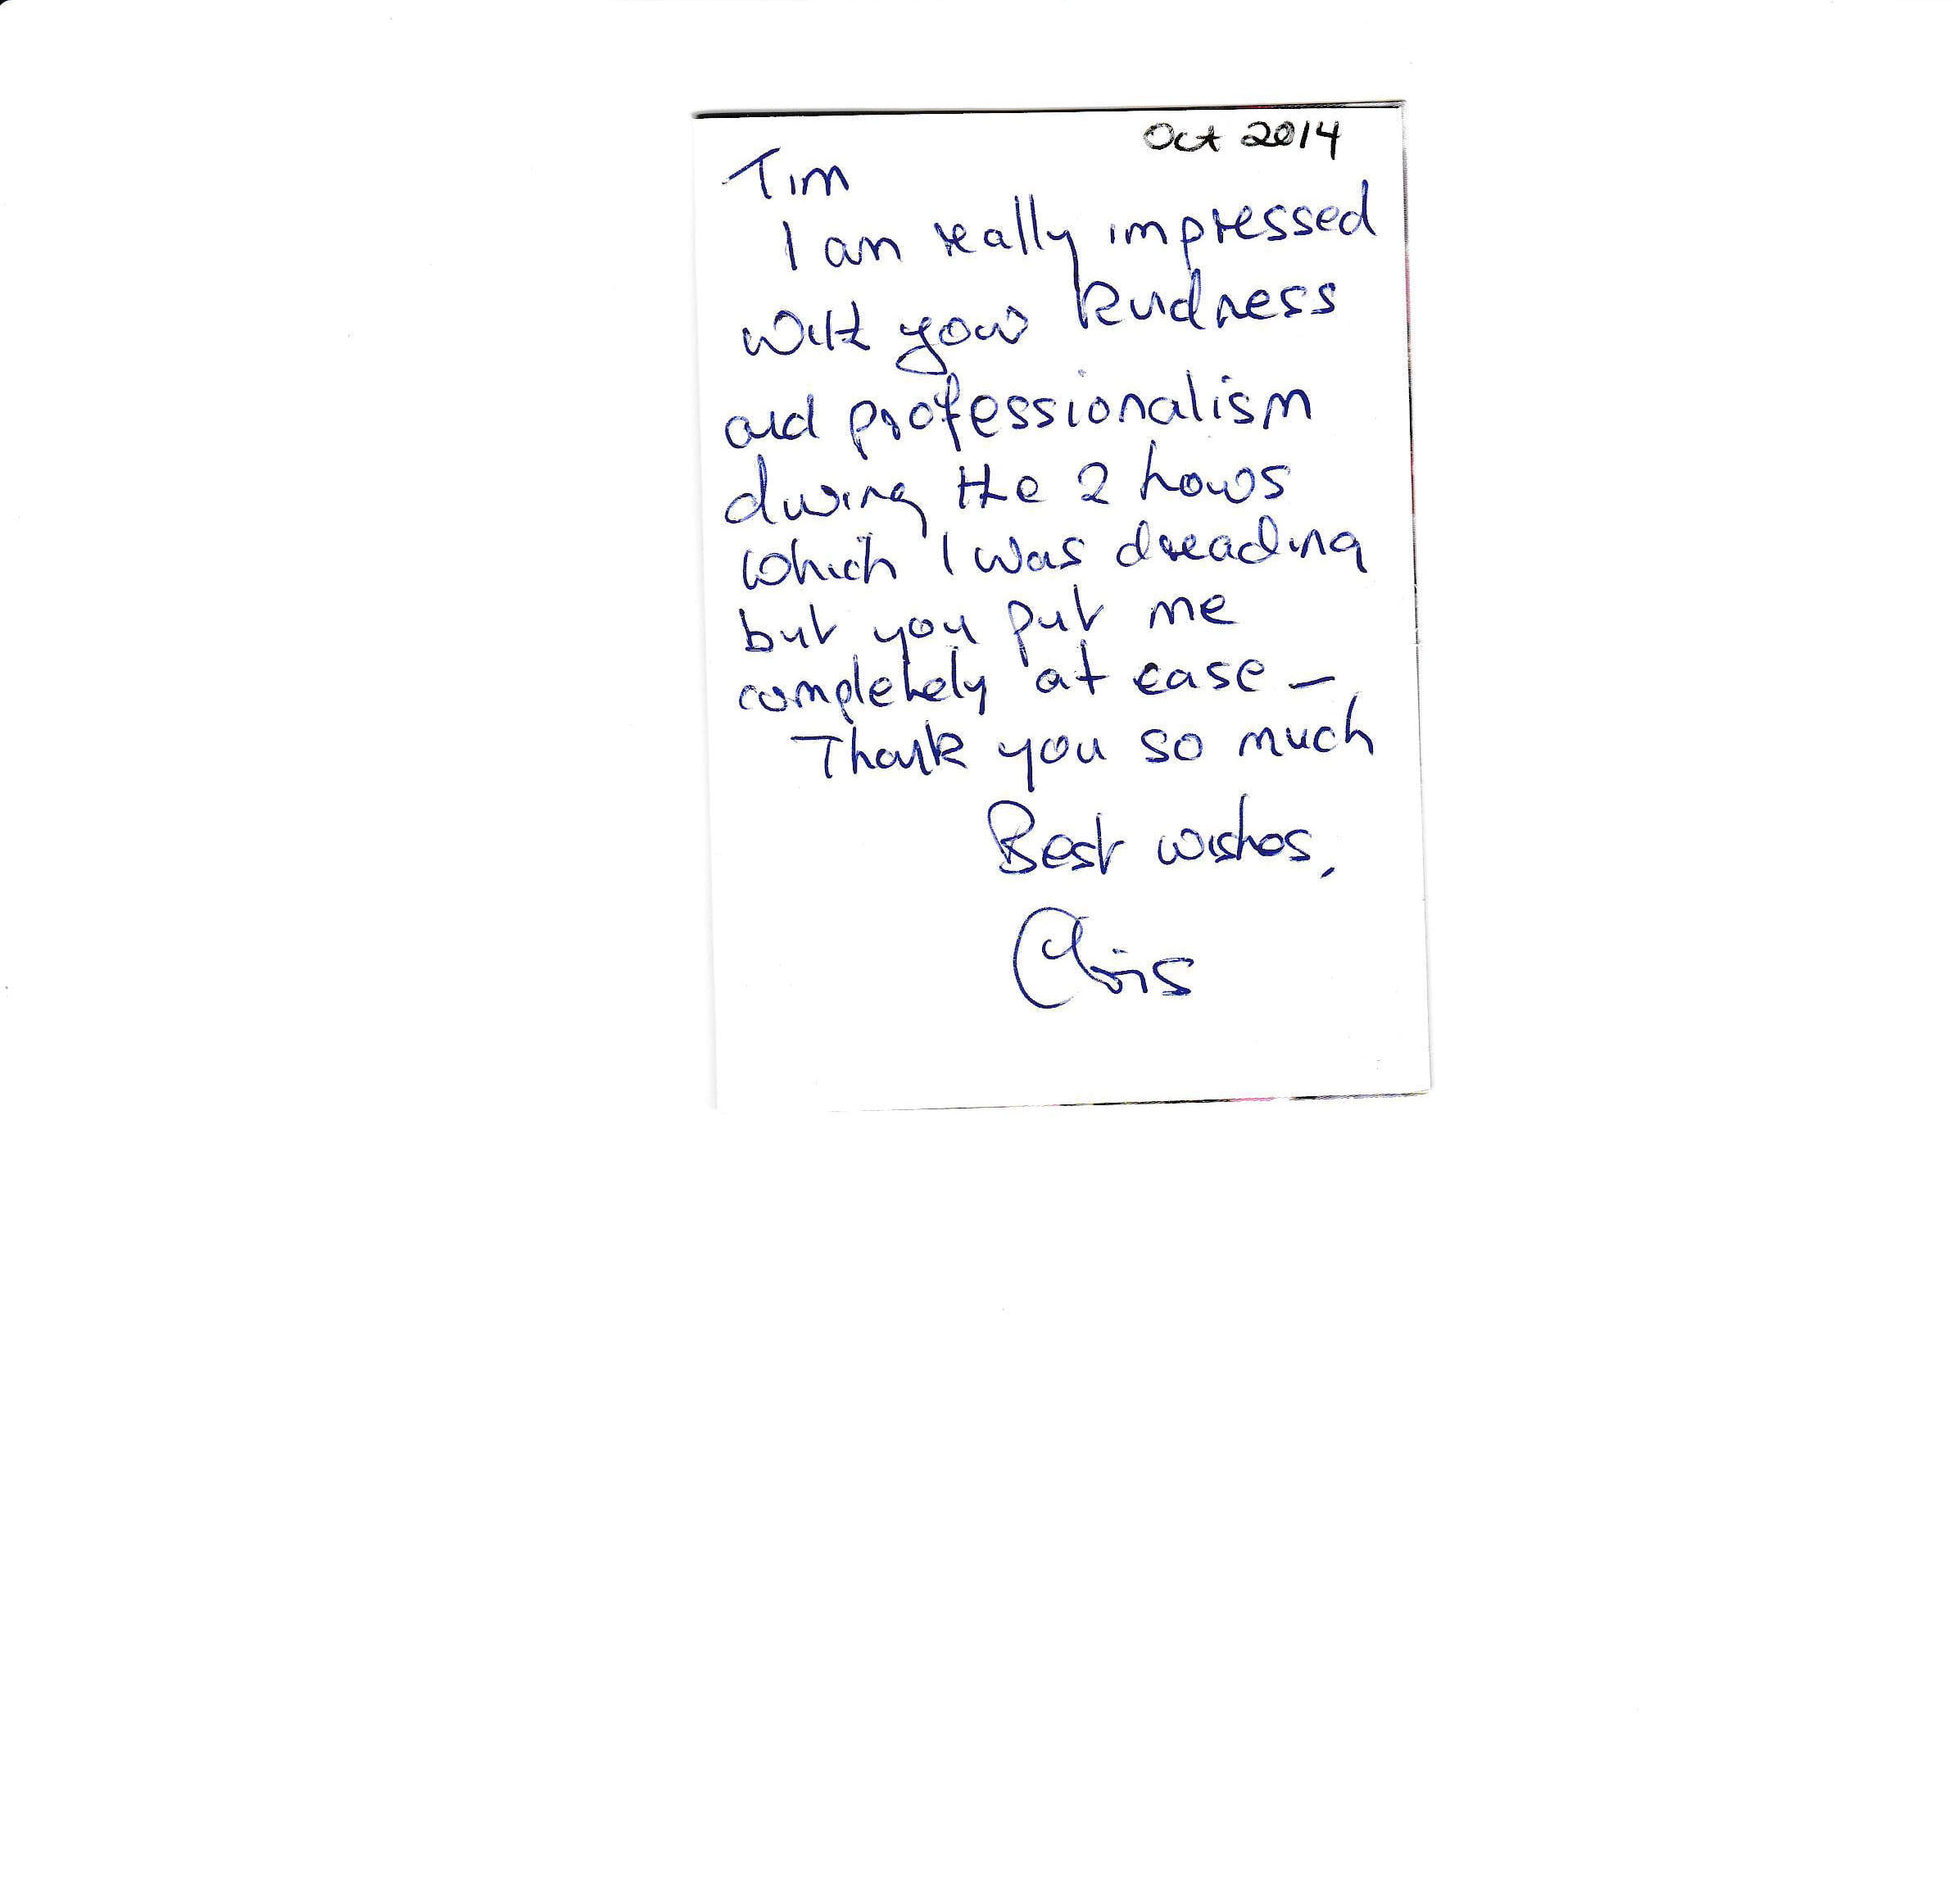 Oct 2014
Tim
I am really impressed
with your kindness
and professionalism
during the 2 hours
which I was dreading
but you put me
completely at ease –
Thank you so much
Best wishes,
Chris